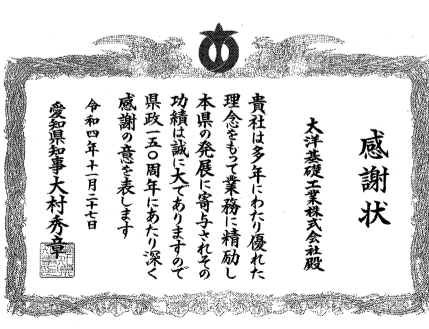 感謝状
太洋基礎工業株式会社殿
貴社は多年にわたり優れた
理念をもって業務に精励し
本県の発展に寄与されその
功績は誠に大でありますので
県政一五〇周年にあたり深く
感謝の意を表します
令和四年十一月二十七日
愛知県知事大村秀章